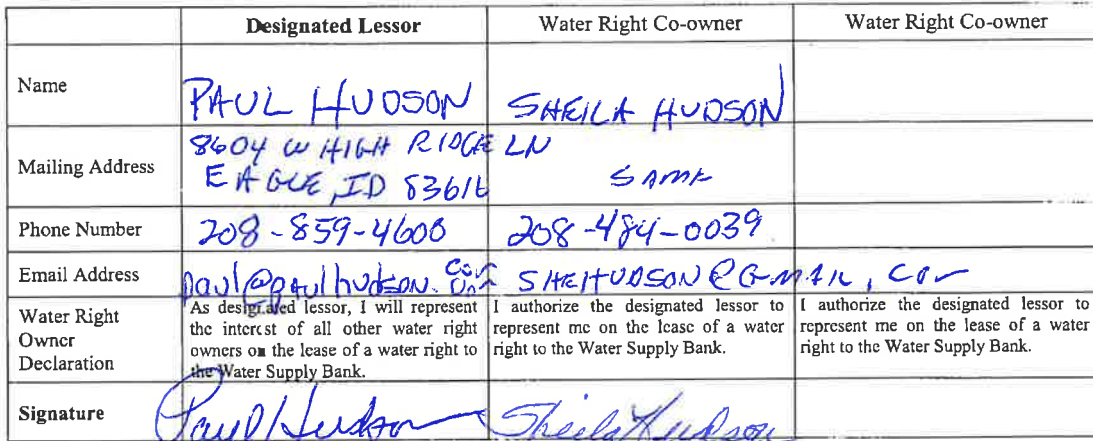 Designated Lessor Water Right Co-owner Water Right Co-owner
Name PAUL HUDSON SHEILA HUDSON
Mailing Address 8604 W HIGH RIDGE LN
EAGLE, ID 83616 SAME
Phone Number 208-859-4600 208-484-0039
Email Address paul@paulhudson.com SHEHUDSON@GMAIL.COM
Water Right Owner Declaration
As designated lessor, I will represent the interest of all other water right owners on the lease of a water right to the Water Supply Bank.
I authorize the designated lessor to represent me on the lease of a water right to the Water Supply Bank.
I authorize the designated lessor to represent me on the lease of a water right to the Water Supply Bank.
Signature Paul Hudson Sheila Hudson